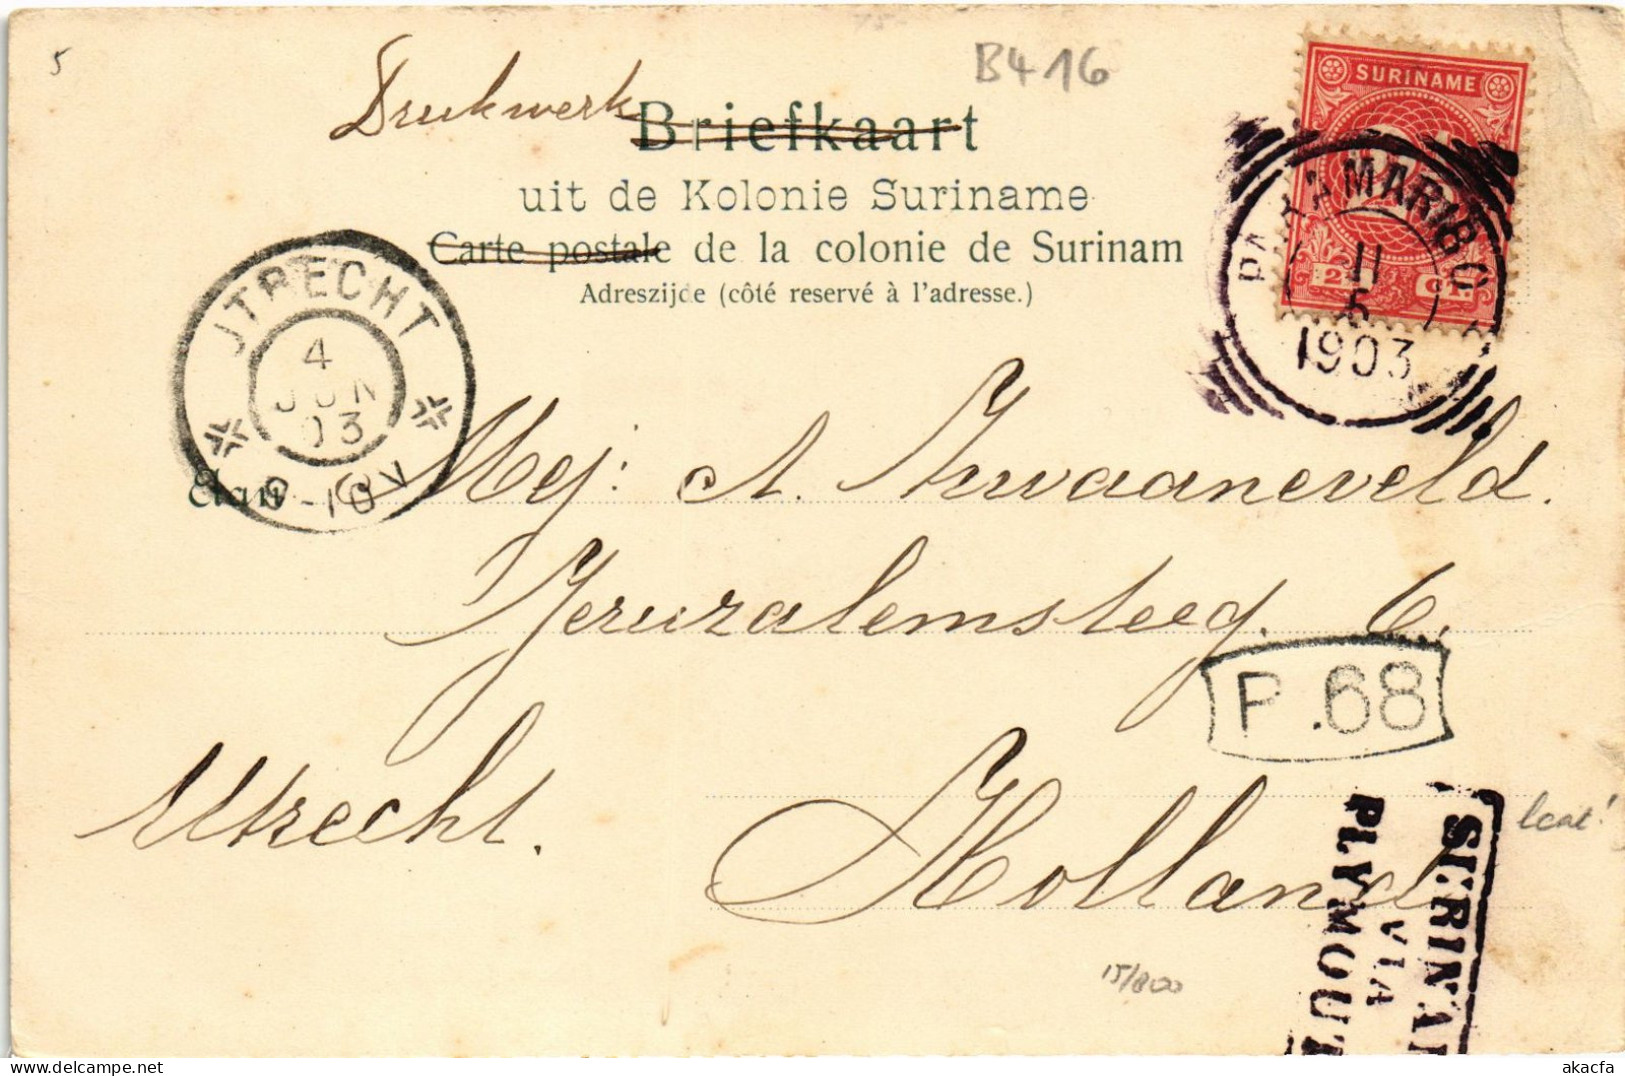 5
B416
Drukwerk
Briefkaart
uit de Kolonie Suriname
Carte postale de la colonie de Surinam
Adreszijde (côté reservé à l'adresse.)
SURINAME
2½ CT.
PARAMARIBO
11
5
1903
UTRECHT
4
JUN
03
9-10V
Aan Mej: A. Zwaaneveld.
Jeruzalemsteeg. 6.
P.68
Utrecht. Holland
SURINAM
VIA
PLYMOUT
15/800
akacfa